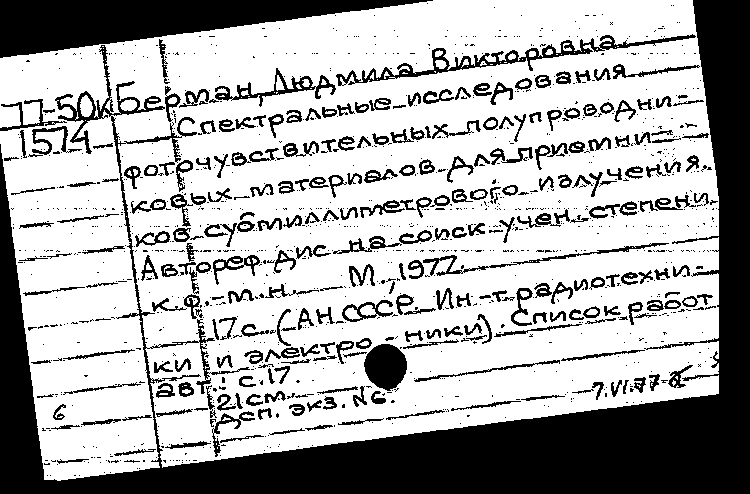 77-50к Берман, Людмила Викторовна.
1574 Спектральные исследования
фоточувствительных полупроводни-
ковых материалов для приемни-
ков субмиллиметрового излучения.
Автореф. дис на соиск учен. степени
к.ф.-м.н. М., 1977.
17 с. (АН СССР. Ин-т радиотехни-
ки и электро-ники). Список работ
авт.: с. 17.
21 см.
Дсп. экз. № 6.
7.VI.77
6